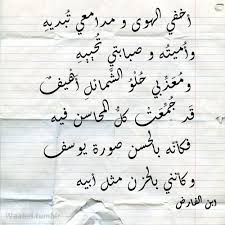 أخفي الهوى و مدامعي تبديهِ
وأميتُه و صبابتي تُحييهِ
و مُعذّبي حُلْوُ الشمائلِ أهيفٌ
قد جُمّعَت كلُّ المحاسن فيه
فكأنه بالحُسنِ صورة يوسف
وكأنني بالحزن مثل أبيه
ابن الفارض